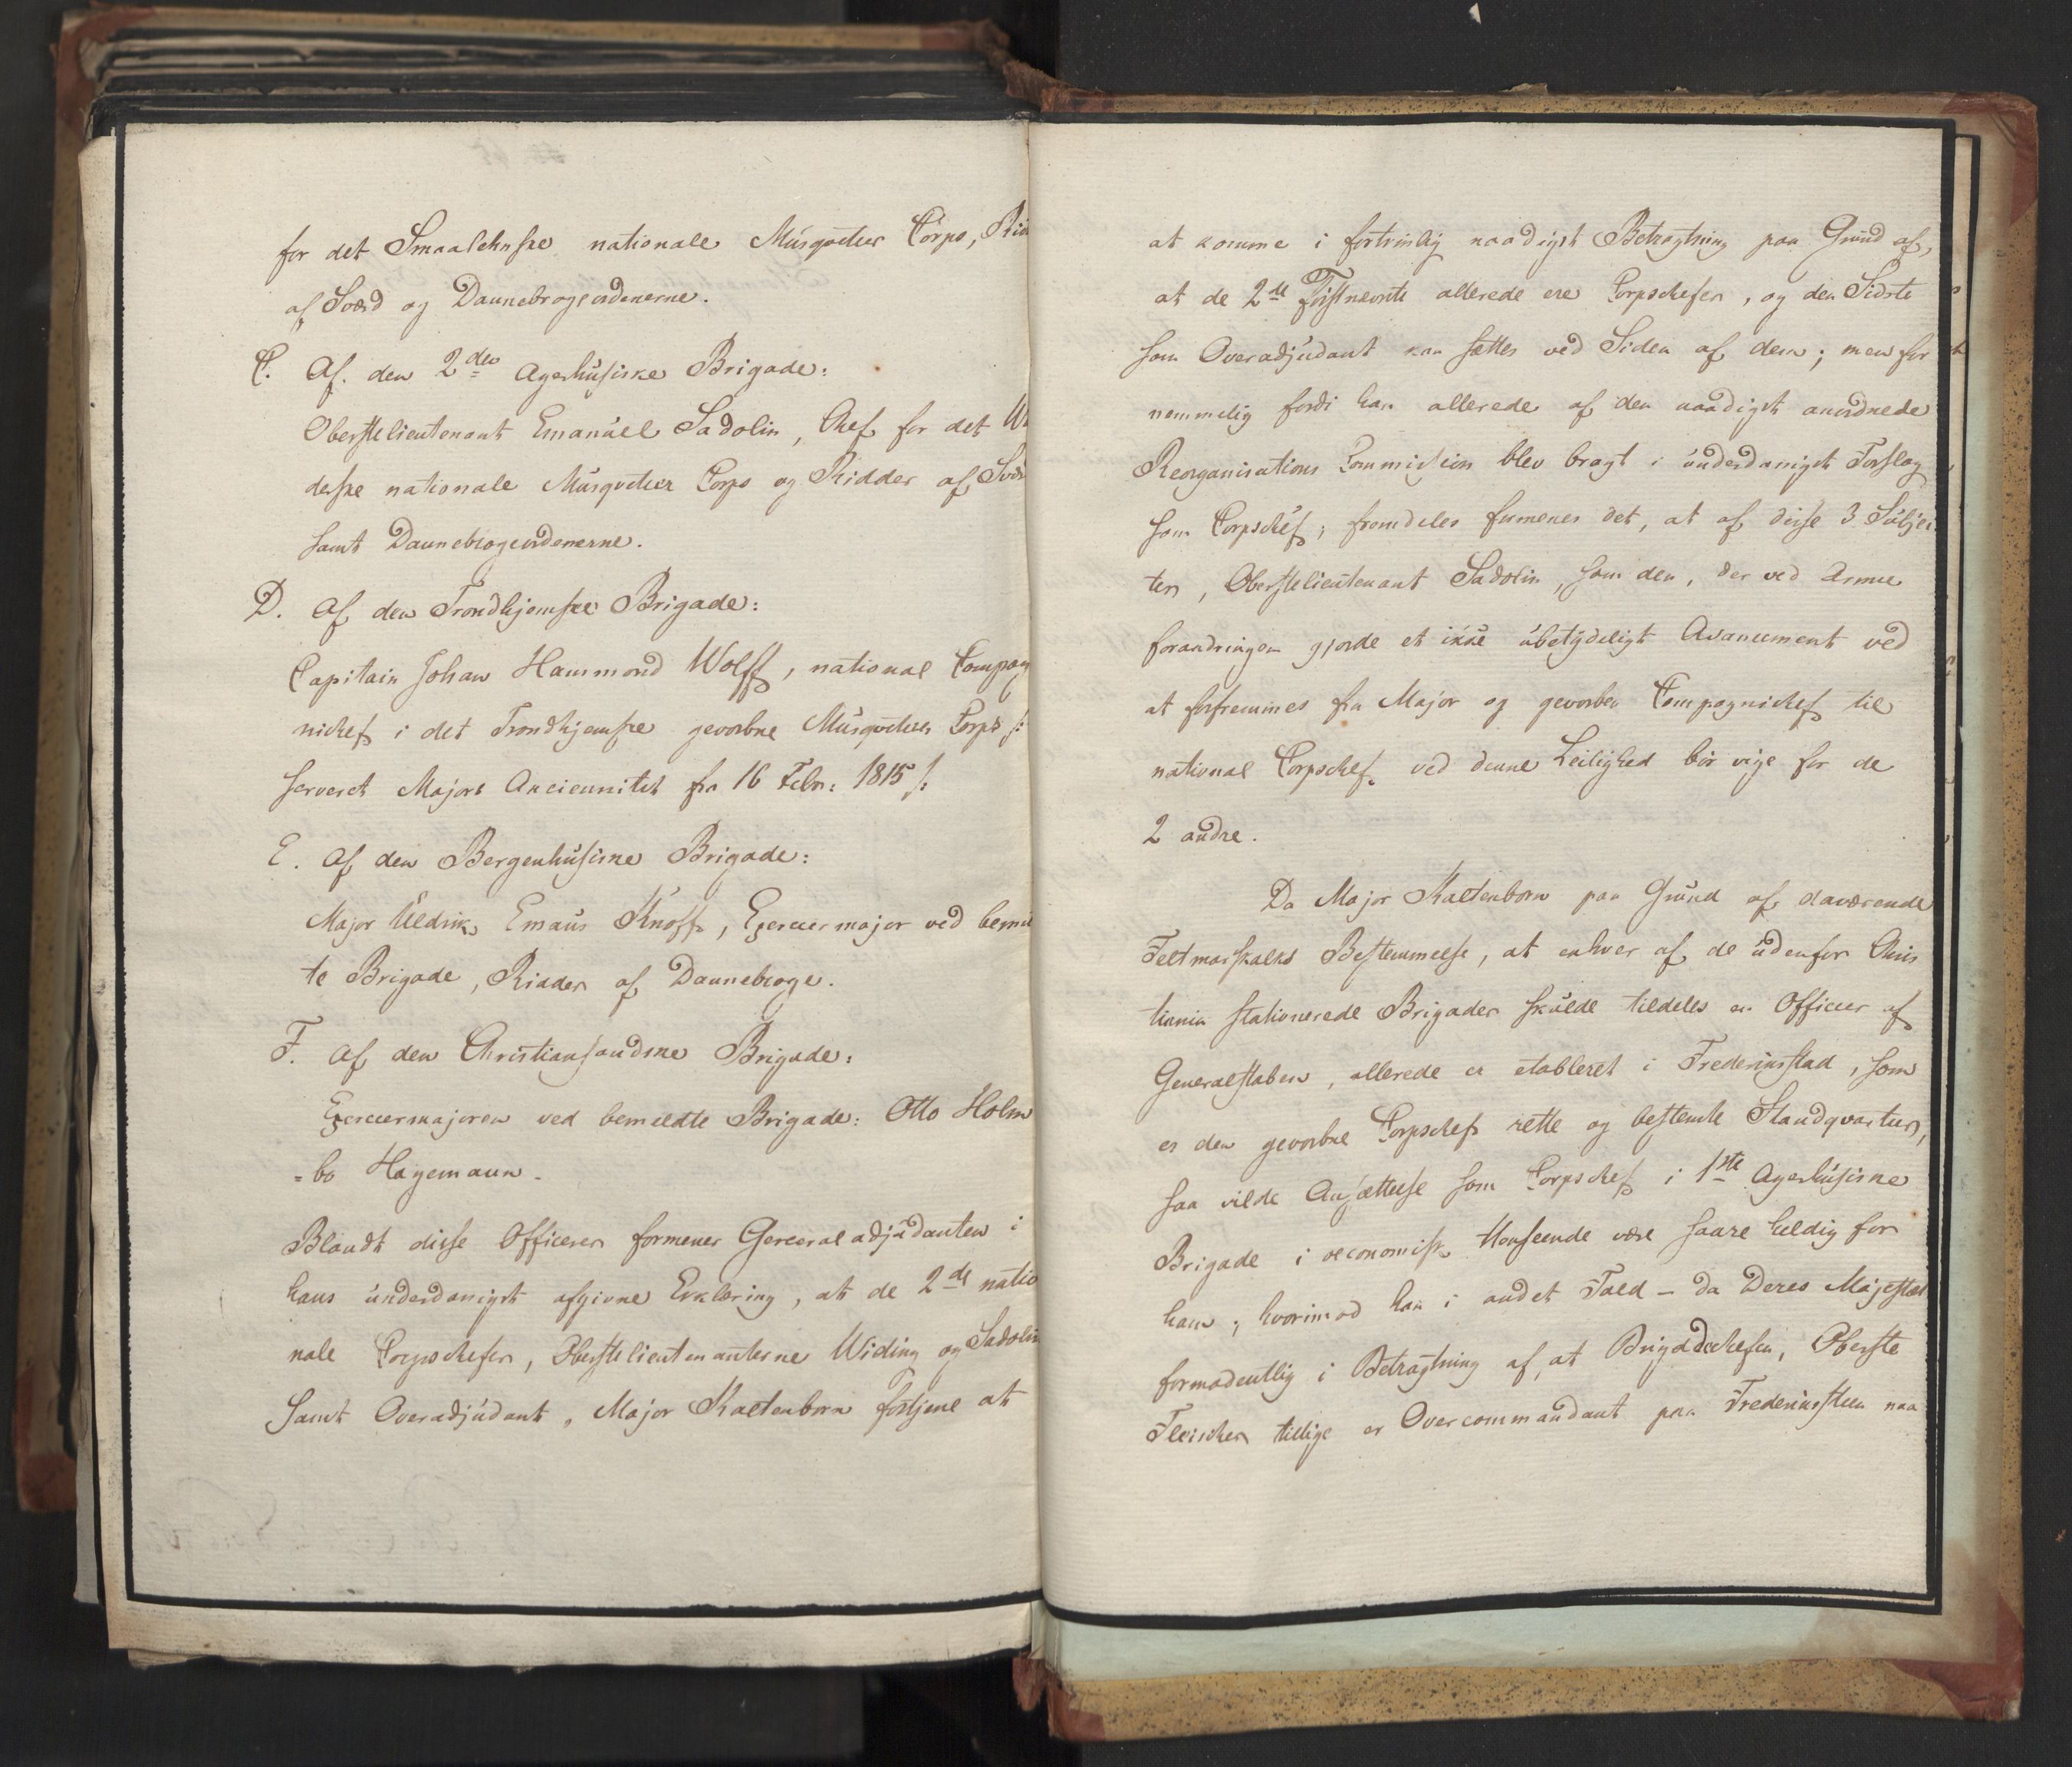 for det Smaalehnske nationale Musqueteer Corps, Rid
af Sværd og Dannebrogeordenerne.
C. Af. den 2den Agershusiske Brigade:
Oberstelieutenant Emanuel Sadolin, Chef for det
derske nationale Musqueteer Corps og Ridder af Svær
samt Dannebrogeordenerne.
D. Af den Trondhjemske Brigade:
Capitain Johan Hammond Wolff, national Compag
niechef i det Trondhjemske gevorbne Musqueteer Corps /:
serveret Majors Anciennitet fra 16 Febr: 1815 /:
E. Af den Bergenhusiske Brigade:
Major Uldrik Emaus Knoff, Exerceermajor ved bemel
te Brigade, Ridder af Dannebroge.
F. Af den Christiansandske Brigade:
Exerceermajoren ved bemeldte Brigade: Otto Holm
=bo Hagemann.
Blandt disse Officerer formener Generaladjudanten i
hans underdanigst afgivne Erklæring, at de 2de natio
nale Corpschefer, Oberstelieutenanterne Widing og Sadolin
samt Overadjudant, Major Kaltenborn fortjene at
at komme i fortrinlig naadigst Betragtning paa Grund af,
at de 2de Førstnevnte allerede ere Corpschefer, og den Sidste
som Overadjudant kan sættes ved Siden af dem; men for
nemmelig fordi han allerede af den naadigst anordnede
Reorganisations Commission blev bragt i underdanigst Forslag
som Corpschef; fremdeles formenes det, at af disse 3 Subjec
ter, Oberstelieutenant Sadolin, som den, der ved Armee
forandringen gjorde et ikke ubetydeligt Avancement ved
at forfremmes fra Major og gevorben Compagniechef til
national Corpschef, ved denne Leilighed bør vige for de
2 andre.
Da Major Kaltenborn paa Grund af daværende
Feltmarskalks Bestemmelse, at enhver af de udenfor Chris
tiania stationerede Brigader skulde tildeles en Officeer af
Generalstaben, allerede er etableret i Fredriksstad, som
er den gevorbne Corpschefs rette og bestemte Standqvarteer,
saa vilde Ansættelse som Corpschef i 1ste Agershusiske
Brigade i oeconomisk Henseende være saare heldig for
ham; hvorimod han i andet Fald – da Deres Majestæt
formodentlig i Betragtning af, at Brigadechefen, Oberste
Fleischer tillige er Overcommandant paa Fredriksteen naa